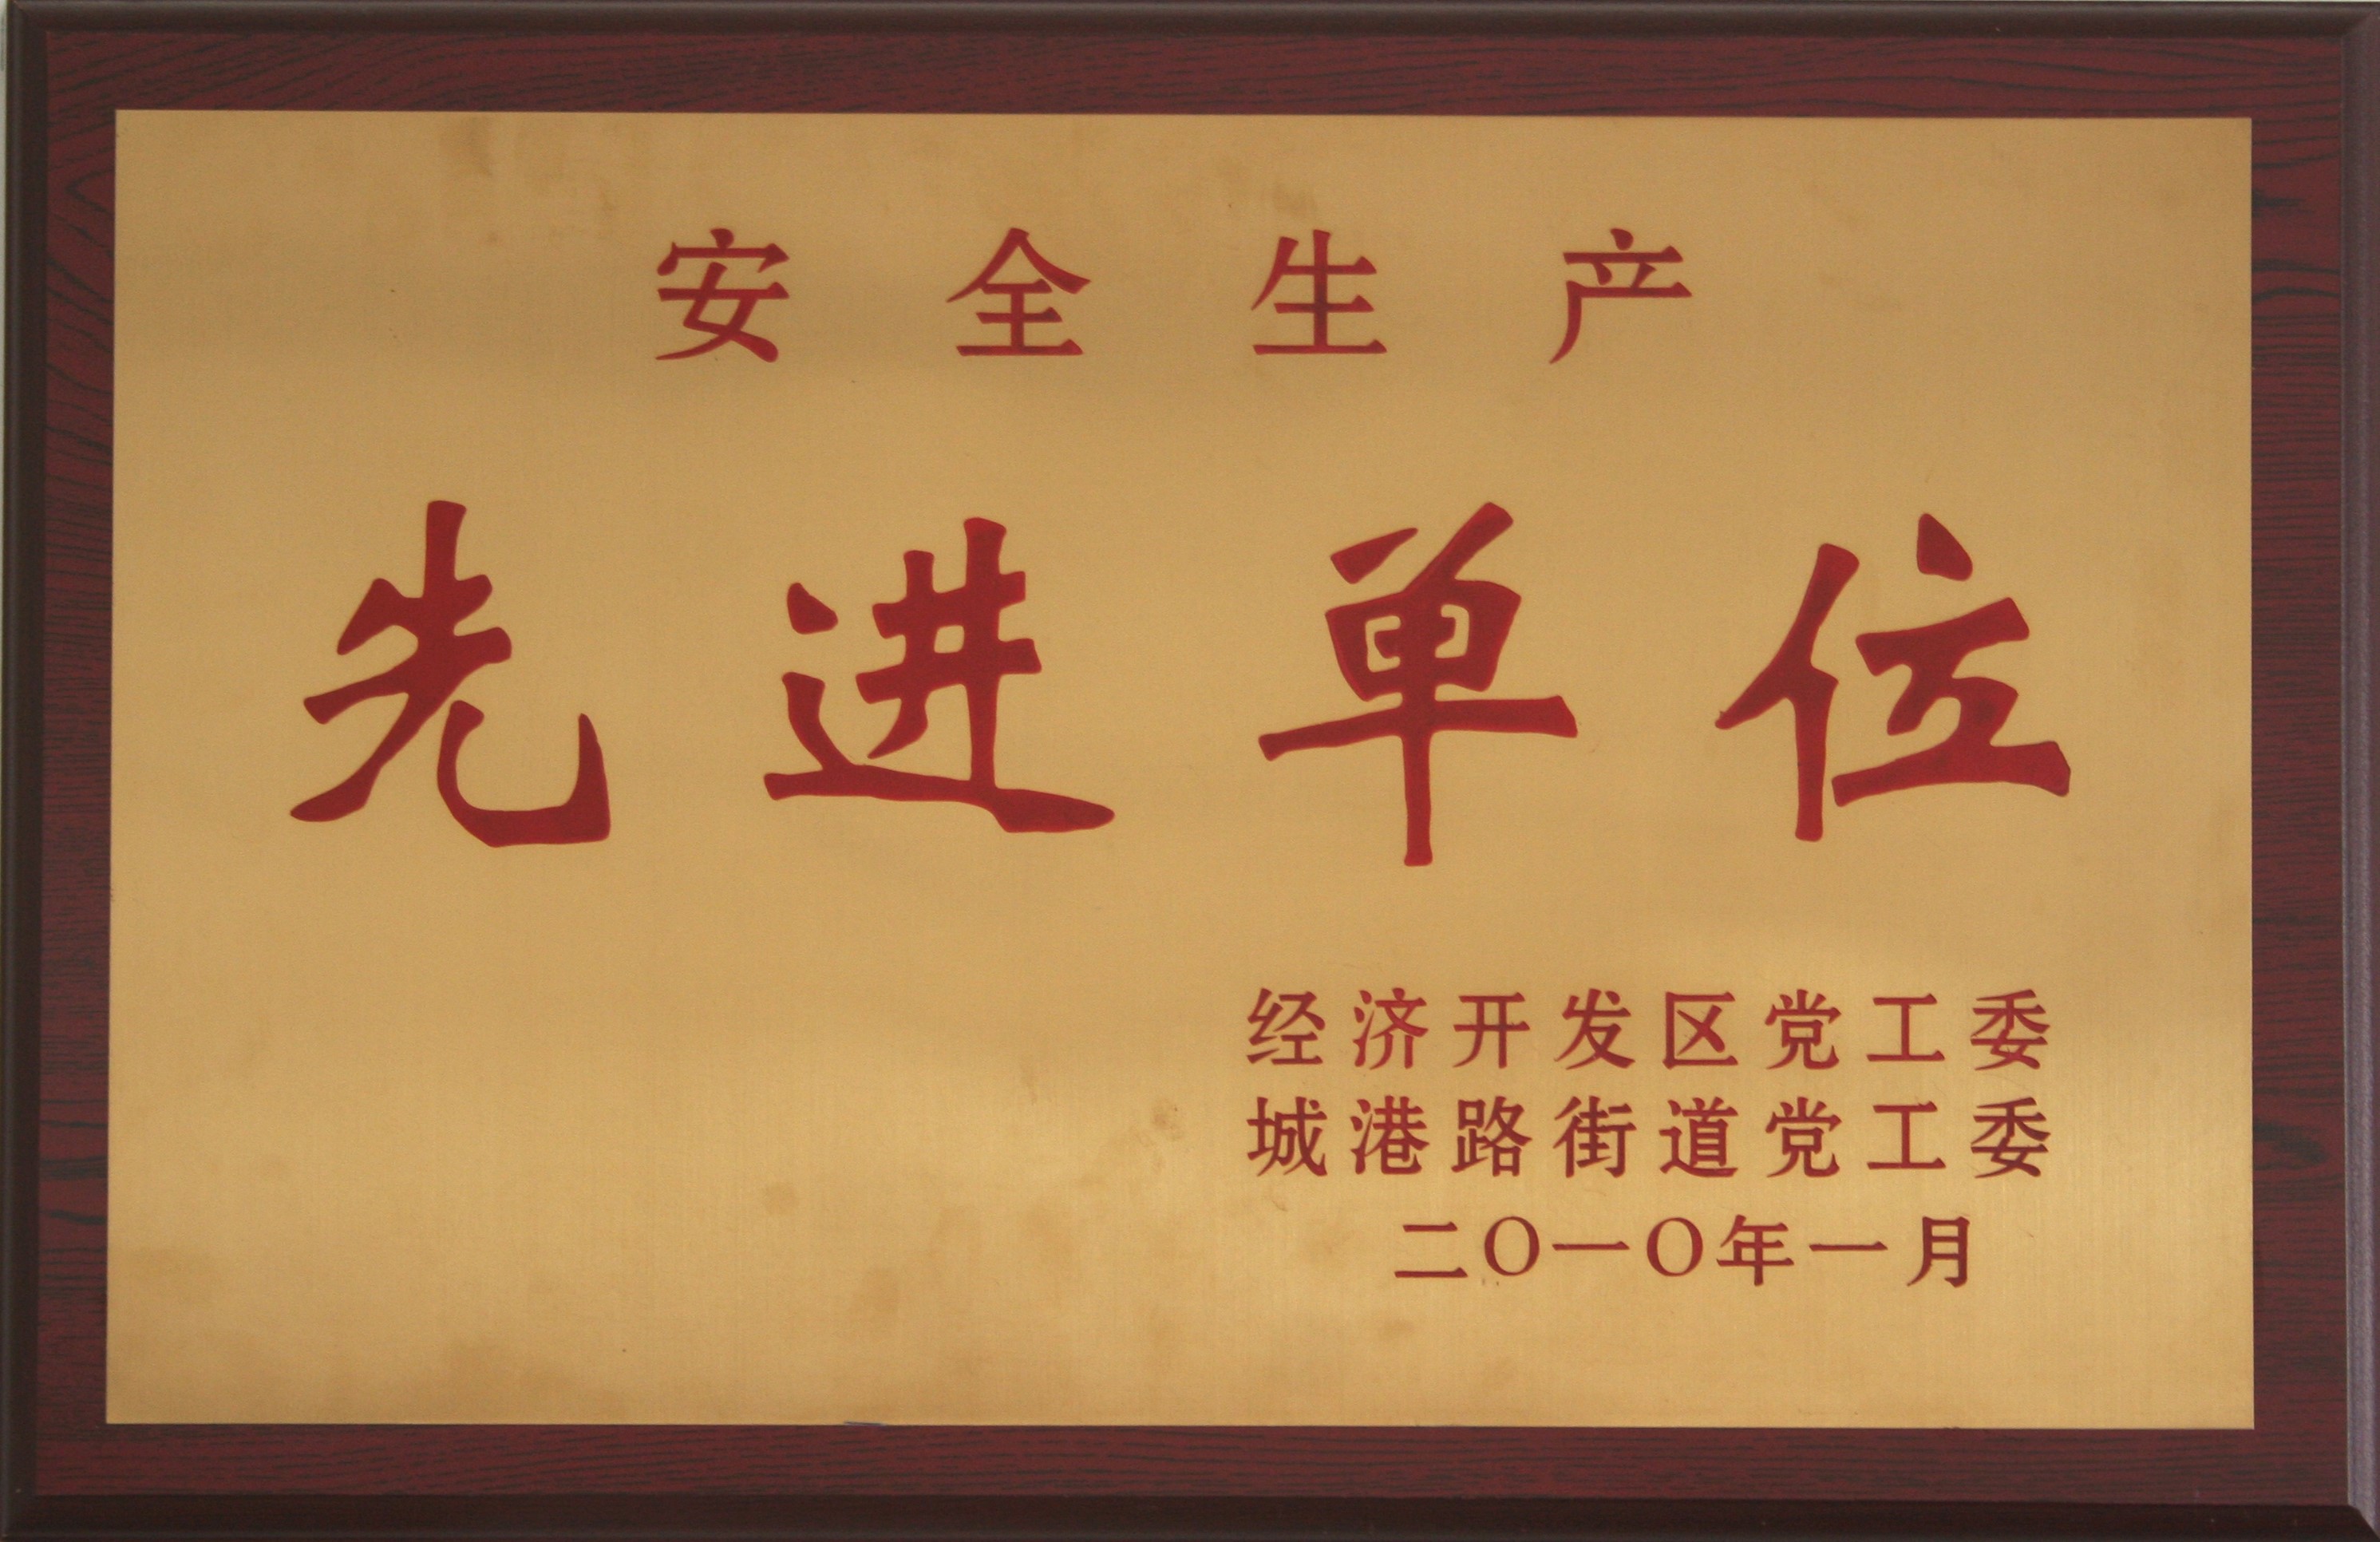 安全生产
先进单位
经济开发区党工委
城港路街道党工委
二〇一〇年一月